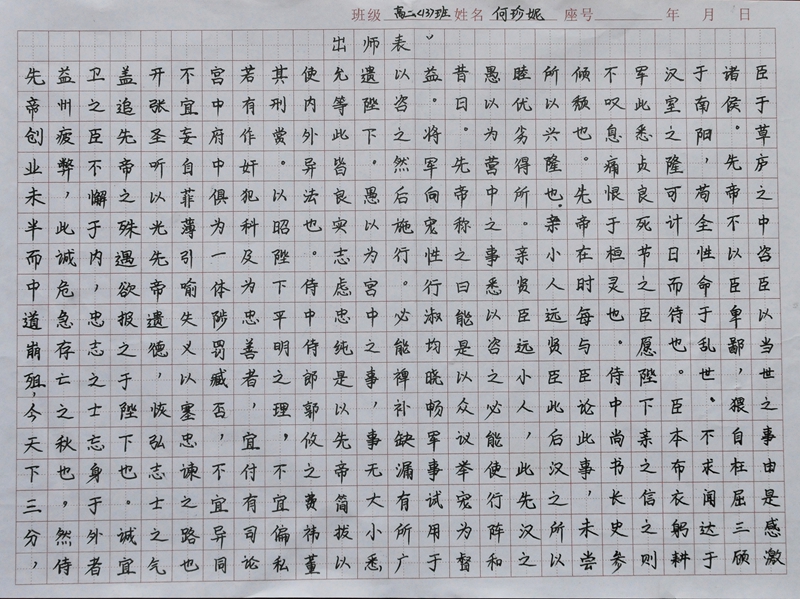 班级 高二(13)班 姓名 何珍妮 座号 年 月 日
出师表
先帝创业未半而中道崩殂,今天下三分,
益州疲弊,此诚危急存亡之秋也。然侍
卫之臣不懈于内,忠志之士忘身于外者
盖追先帝之殊遇欲报之于陛下也。诚宜
开张圣听以光先帝遗德,恢弘志士之气
不宜妄自菲薄引喻失义以塞忠谏之路也
宫中府中俱为一体陟罚臧否,不宜异同
若有作奸犯科及为忠善者,宜付有司论
其刑赏。以昭陛下平明之理,不宜偏私
使内外异法也。侍中侍郎郭攸之费祎董
允等此皆良实志虑忠纯是以先帝简拔以
遗陛下。愚以为宫中之事,事无大小悉
以咨之然后施行。必能裨补缺漏有所广
益。将军向宠性行淑均晓畅军事试用于
昔日。先帝称之曰能是以众议举宠为督
愚以为营中之事悉以咨之必能使行阵和
睦优劣得所。亲贤臣远小人,此先汉之
所以兴隆也。亲小人远贤臣此后汉之所以
倾颓也。先帝在时每与臣论此事,未尝
不叹息痛恨于桓灵也。侍中尚书长史参
军此悉贞良死节之臣愿陛下亲之信之则
汉室之隆可计日而待也。臣本布衣躬耕
于南阳,苟全性命于乱世。不求闻达于
诸侯。先帝不以臣卑鄙,猥自枉屈三顾
臣于草庐之中咨臣以当世之事由是感激